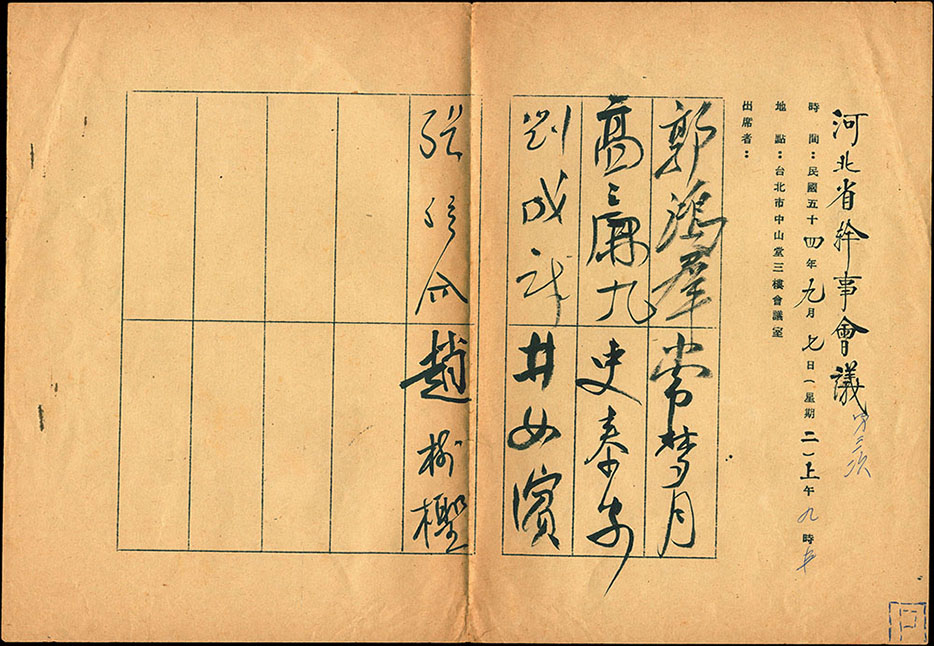 河北省幹事會議 第三次
時間：民國五十四年九月七日（星期二）上午九時半
地點：台北市中山堂三樓會議室
出席者：
郭鴻群
常夢月
高廉九
史泰安
劉成
井汝濱
張
趙樹樫